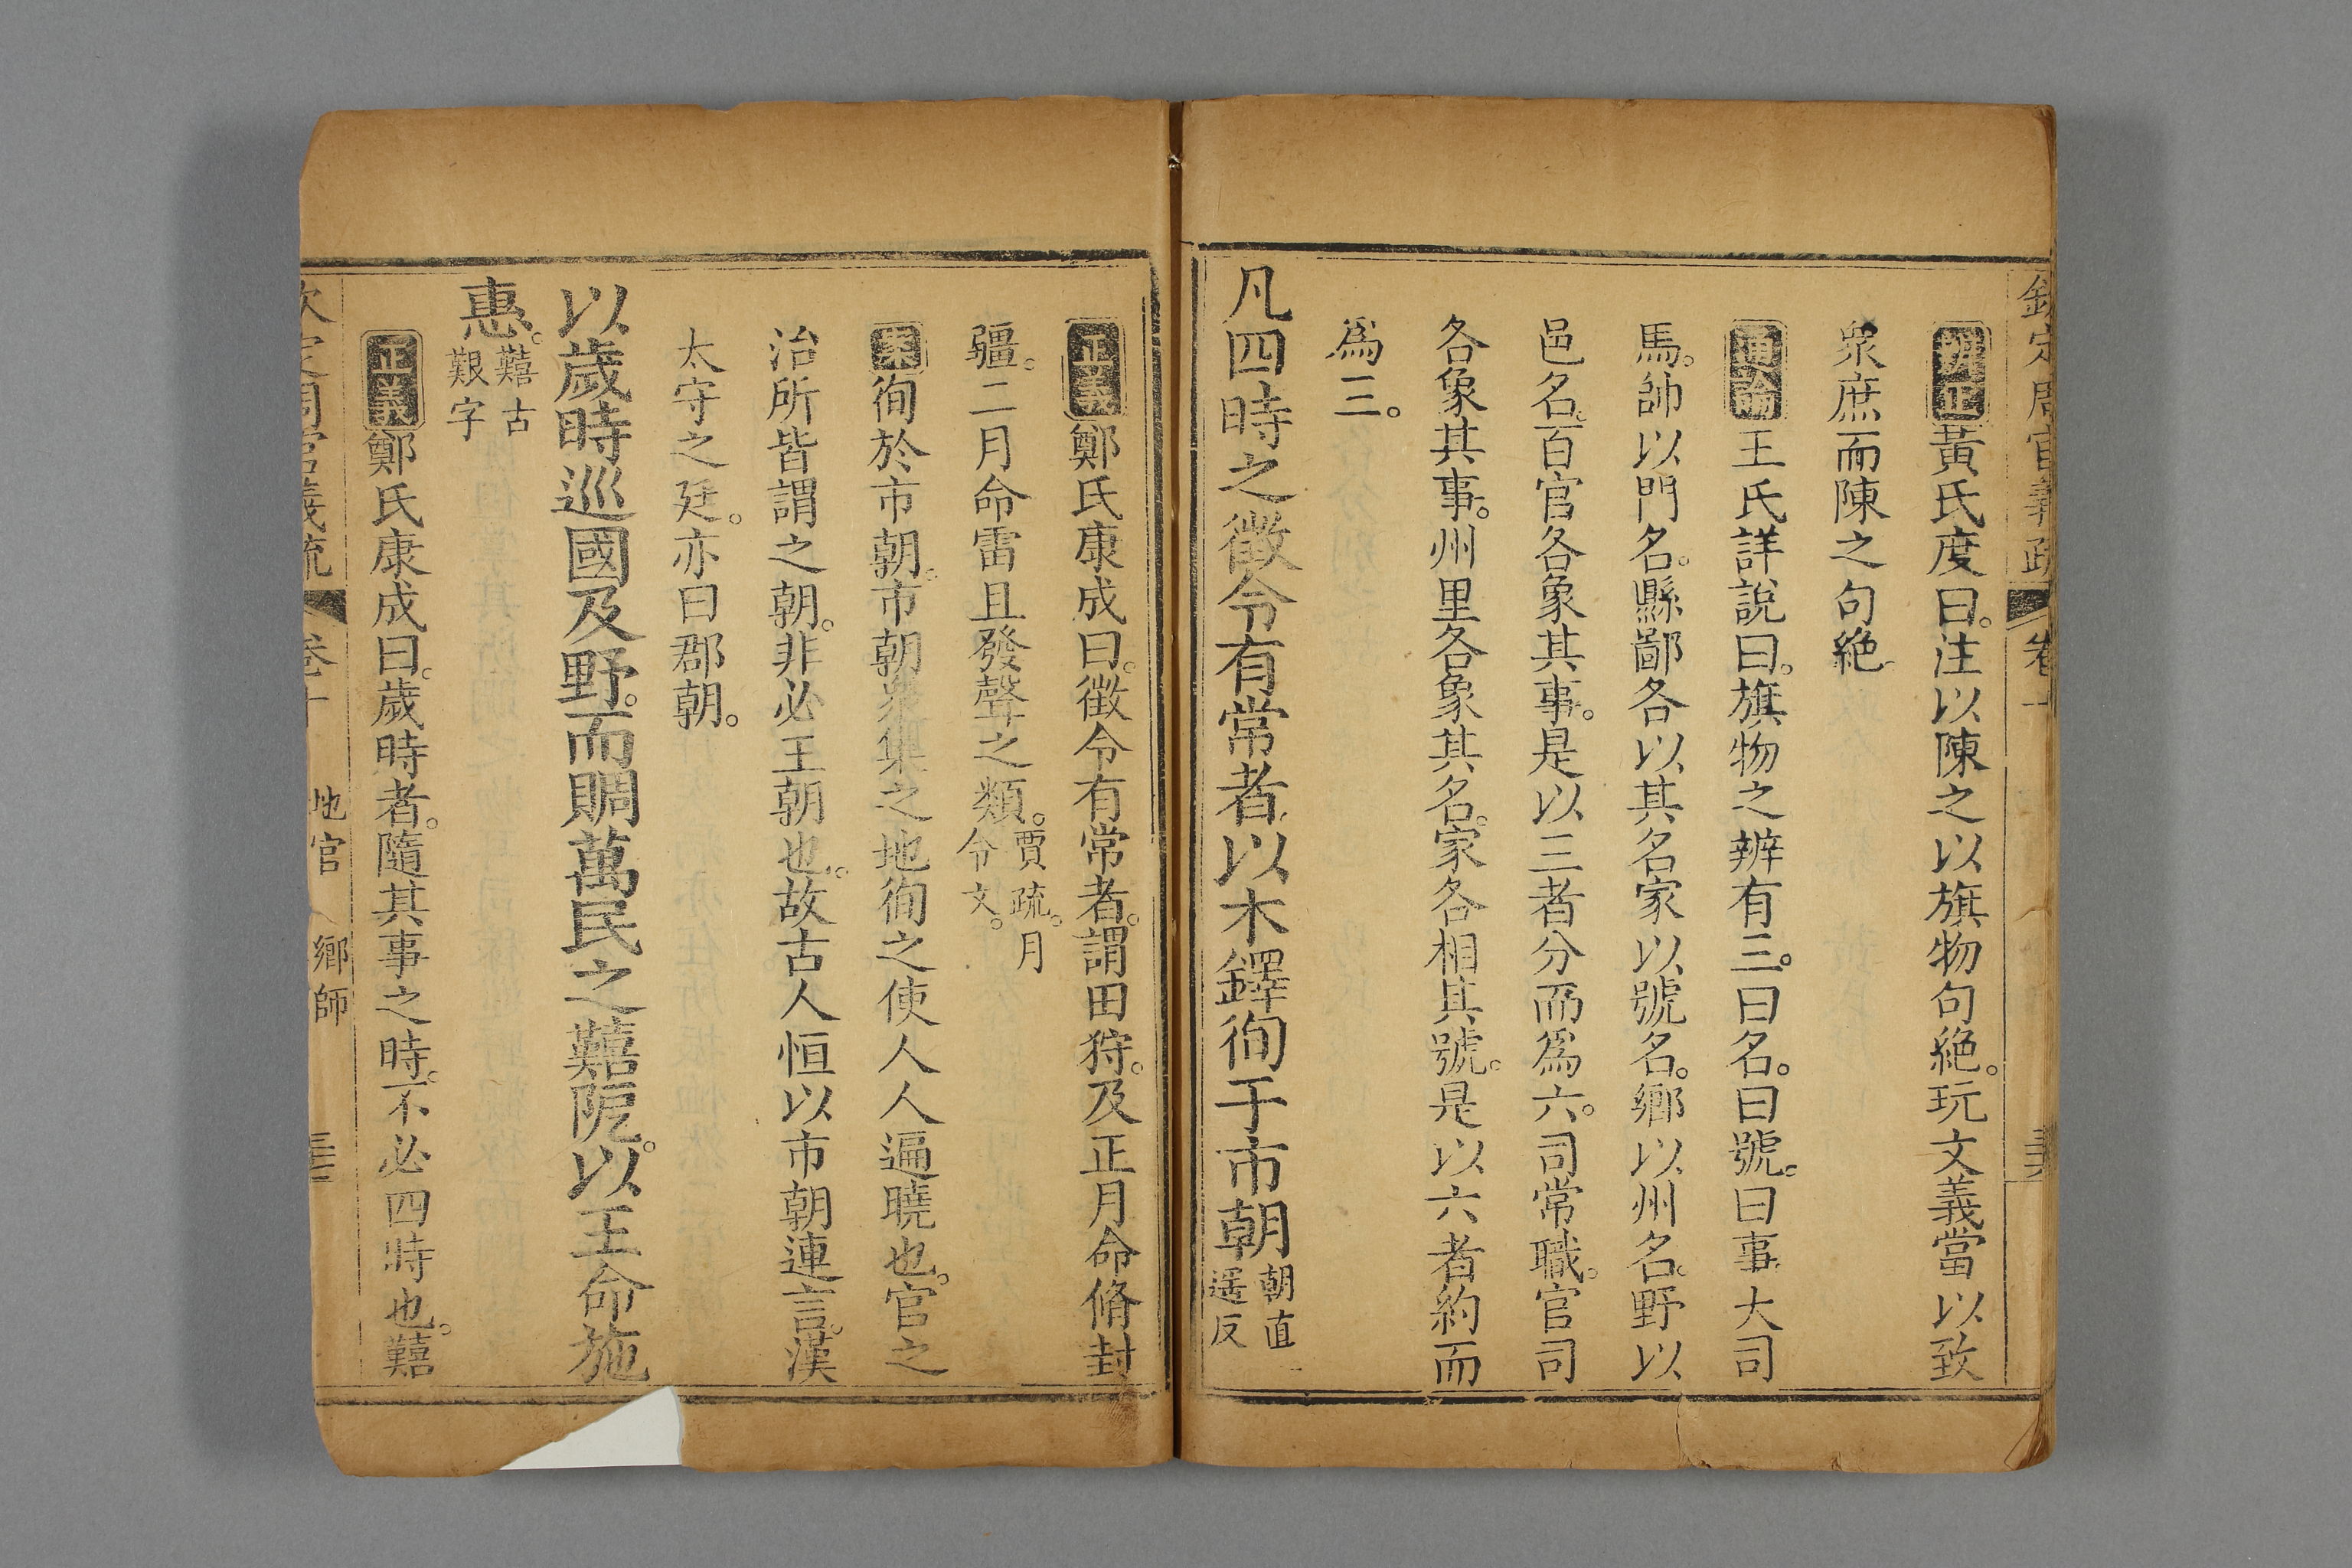 欽定周官義疏 卷十
辨正黃氏度曰。注以陳之以旗物句絕。玩文義當以致
衆庶而陳之句絕
通論王氏詳說曰。旗物之辨有三。曰名。曰號。曰事。大司
馬。帥以門名。縣鄙各以其名家以號名。鄉以州名。野以
邑名。百官各象其事。是以三者分而爲六。司常職。官司
各象其事。州里各象其名。家各相其號。是以六者約而
爲三。
凡四時之徵令有常者。以木鐸徇于市朝朝直遥反
正義鄭氏康成曰。徵令有常者。謂田狩。及正月命脩封
疆。二月命雷且發聲之類。賈疏。月令文。
案徇於市朝。市朝衆集之地徇之使人人遍曉也。官之
治所皆謂之朝。非必王朝也。故古人恒以市朝連言。漢
太守之廷。亦曰郡朝。
以歲時巡國及野。而賙萬民之囏阨。以王命施
惠。囏古艱字
正義鄭氏康成曰。歲時者。隨其事之時。不必四時也。囏
欽定周官義疏 卷十 地官 鄉師